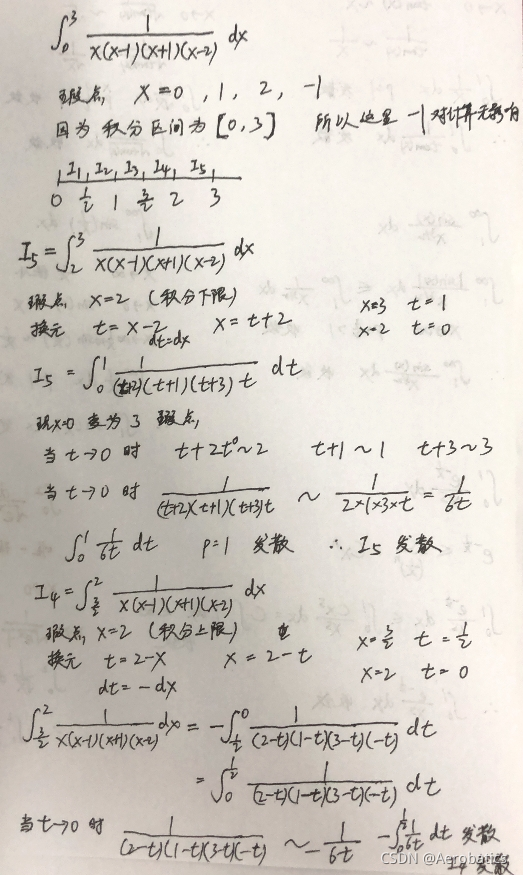 ∫₀³ 1/(x(x-1)(x+1)(x-2)) dx
瑕点, x=0, 1, 2, -1
因为 积分区间为 [0,3] 所以这里 -1 对计算无影响
I₁ I₂ I₃ I₄ I₅
0 1/2 1 3/2 2 3
I₅ = ∫₂³ 1/(x(x-1)(x+1)(x-2)) dx
瑕点 x=2 (积分下限) x=3 t=1
换元 t=x-2 x=t+2 x=2 t=0
dt=dx
I₅ = ∫₀¹ 1/((t+2)(t+1)(t+3)t) dt
现 x=0 变为 3 瑕点,
当 t→0 时 t+2 ~ 2 t+1 ~ 1 t+3 ~ 3
当 t→0 时 1/((t+2)(t+1)(t+3)t) ~ 1/(2×1×3×t) = 1/6t
∫₀¹ 1/6t dt p=1 发散 ∴ I₅ 发散
I₄ = ∫_{3/2}^2 1/(x(x-1)(x+1)(x-2)) dx
瑕点, x=2 (积分上限) x=3/2 t=1/2
换元 t=2-x x=2-t x=2 t=0
dt=-dx
∫_{3/2}^2 1/(x(x-1)(x+1)(x-2)) dx = -∫_{1/2}^0 1/((2-t)(1-t)(3-t)(-t)) dt
= ∫_0^{1/2} 1/((2-t)(1-t)(3-t)(-t)) dt
当 t→0 时 1/((2-t)(1-t)(3-t)(-t)) ~ -1/6t -∫_0^{1/2} 1/6t dt 发散
I₄ 发散
CSDN @Aerobatics